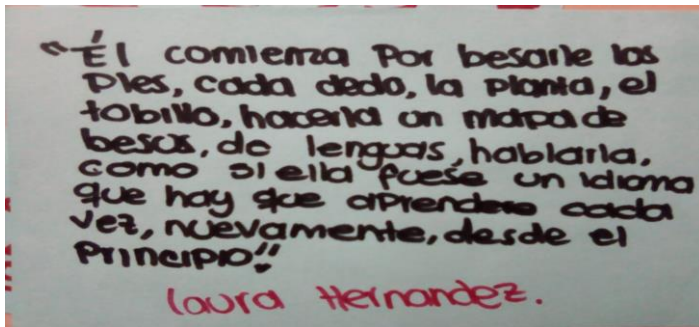 "Él comienza Por besarle los
Pies, cada dedo, la planta, el
tobillo, hacerla un mapa de
besos, de lenguas, hablarla,
como si ella fuese un idioma
que hay que aprender cada
vez, nuevamente, desde el
Principio".
laura Hernandez.